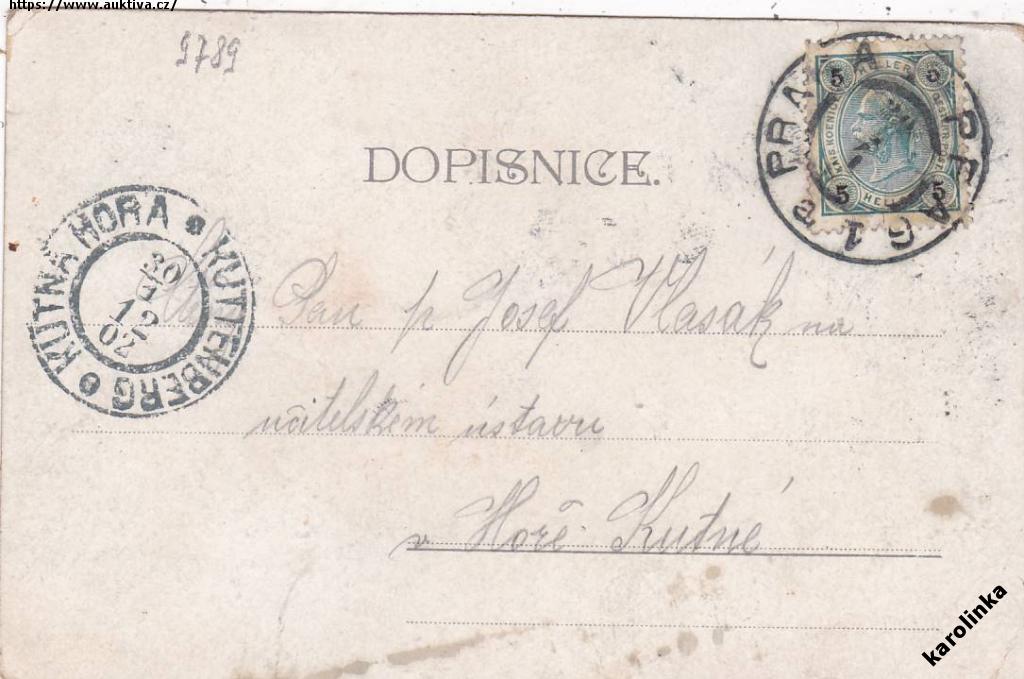 https://www.auktiva.cz/
9789
DOPISNICE.
PRAHA PRAG 1
5 HELLER 5
5 HELLER 5
KUTNÁ HORA KUTTENBERG
30
12
02
Pan p Josef Vlasák na
učitelském ústavu
v Hoře Kutné
karolinka